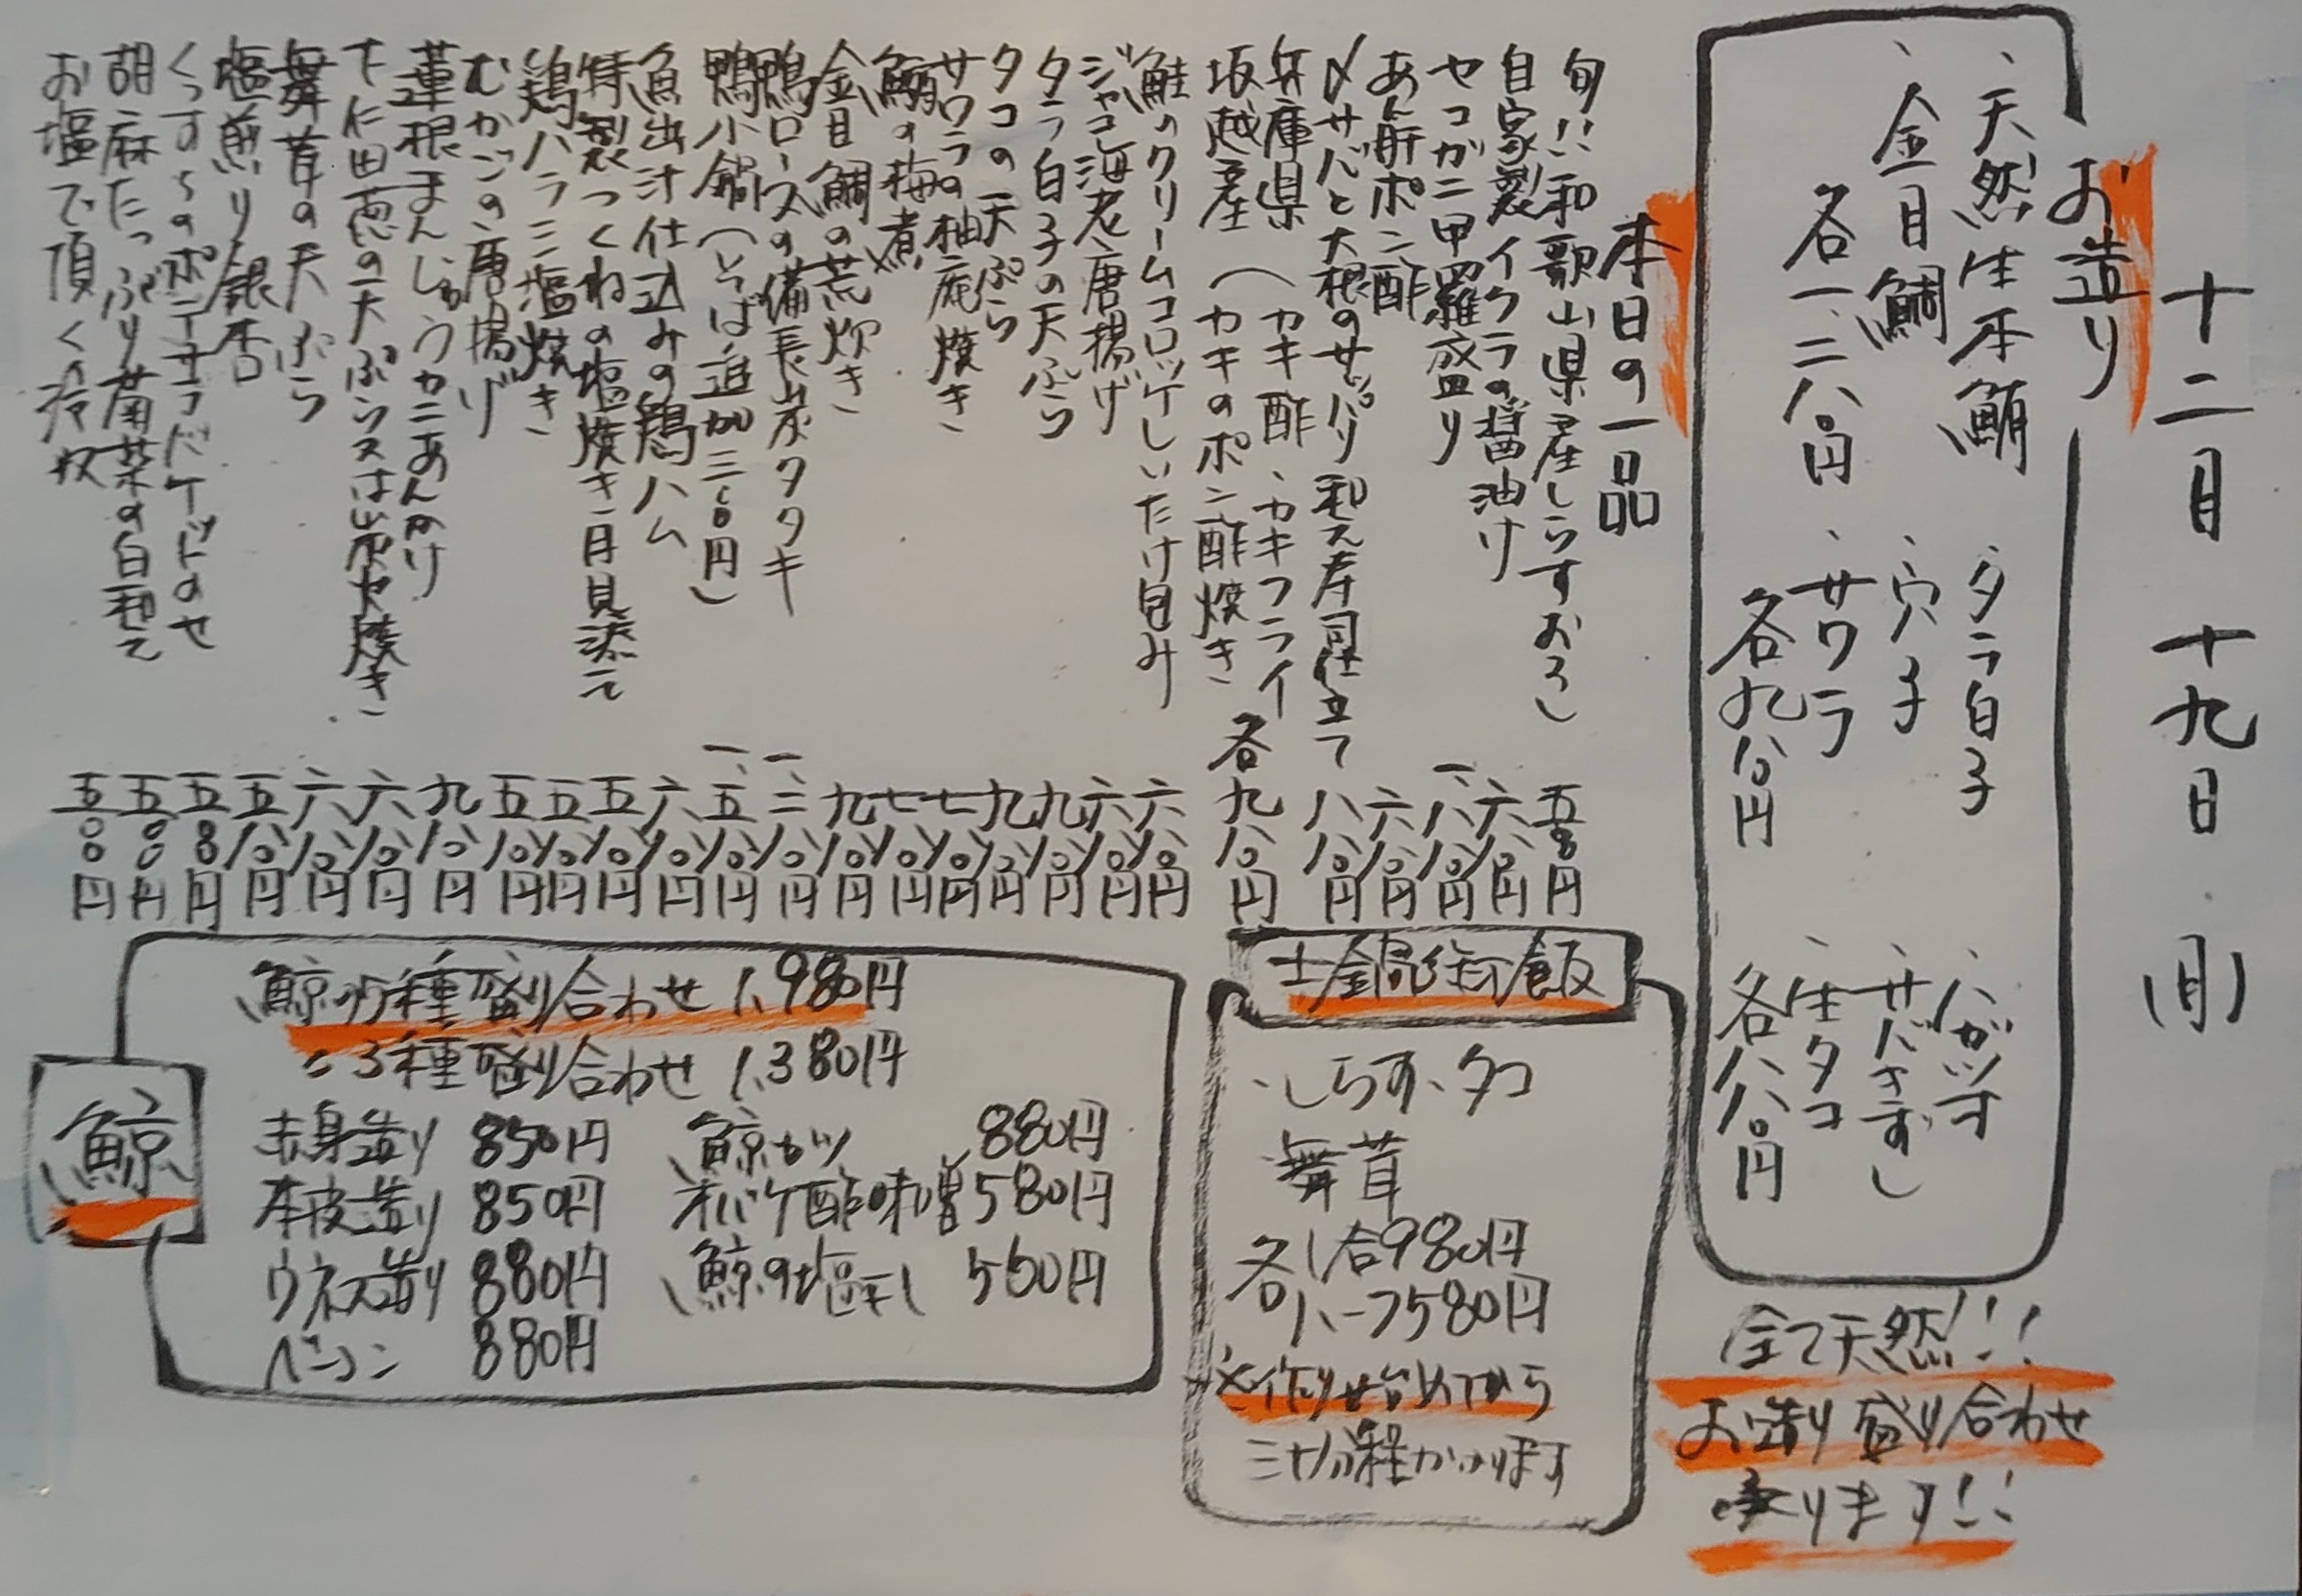 十二月十九日(月)
お造り
、天然生本鮪
、金目鯛
各一、二八〇円
、タラ白子
、穴子
、サワラ
各九八〇円
、ハガツオ
、サバきずし
、生タコ
各八八〇円
全て天然!!!
お造り盛り合わせ
承ります!!
本日の一品
旬!!和歌山県産しらすおろし 五八〇円
自家製イクラの醤油け 六八〇円
セコガニ甲羅盛り 一、八八〇円
あん肝ポン酢 六八〇円
〆サバと大根のサッパリ和え寿司仕立て 八八〇円
兵庫県 (カキ酢、カキフライ
坂越産 (カキのポン酢焼き 各九八〇円
鮭のクリームコロッケしいたけ包み 六八〇円
ジャコ海老唐揚げ 六八〇円
タラ白子の天ぷら 九八〇円
タコの天ぷら 九八〇円
サワラの柚庵焼き 七八〇円
鮪の梅煮 七八〇円
金目鯛の荒炊き 九八〇円
鴨ロースの備長炭タタキ 一、二八〇円
鴨小鍋(そば追加三〇〇円) 一、五八〇円
魚出汁仕込みの鶏ハム 六八〇円
特製つくねの塩焼き月見添え 五八〇円
鶏ハラミ塩焼き 五八〇円
むかごの唐揚げ 五八〇円
蓮根まんじゅうカニあんかけ 九八〇円
下仁田葱の天ぷら又は山椒焼き 六八〇円
舞茸の天ぷら 六八〇円
塩煎り銀杏 五八〇円
くっすらのポテサラドケッドのせ 五八〇円
胡麻たっぷり菊菜の白和え 五八〇円
お塩で頂く冷奴 五〇〇円
土鍋炊き飯
、しらす、タコ
舞茸
各1合980円
ハーフ580円
※作り始めてから
三十分程かかります
鯨
鯨の5種盛り合わせ 1,980円
〃3種盛り合わせ 1,380円
赤身造り 850円 鯨カツ 880円
本皮造り 850円 オバケ酢味噌 580円
ウネス造り 880円 鯨の塩干し 550円
ベーコン 880円